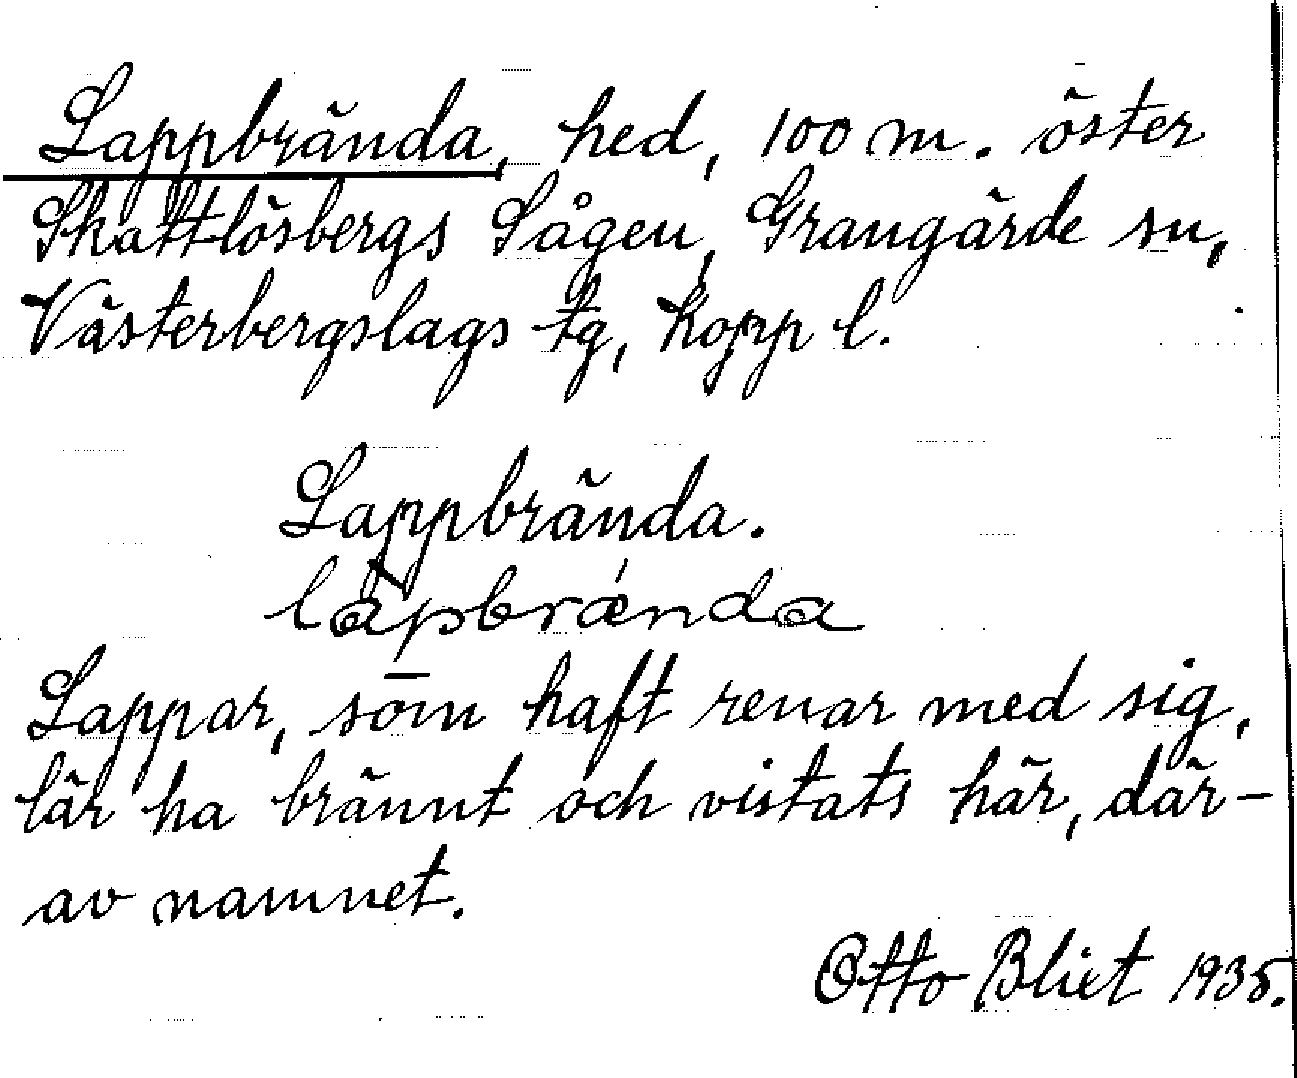 Lappbrända, hed, 100 m. öster
Skattlösbergs Sågen, Grangärde sn,
Västerbergslags tg, Kopp l.
Lappbrända.
làpbrǽnda
Lappar, som haft renar med sig,
lär ha brännt och vistats här, där-
av namnet.
Otto Blixt 1935.